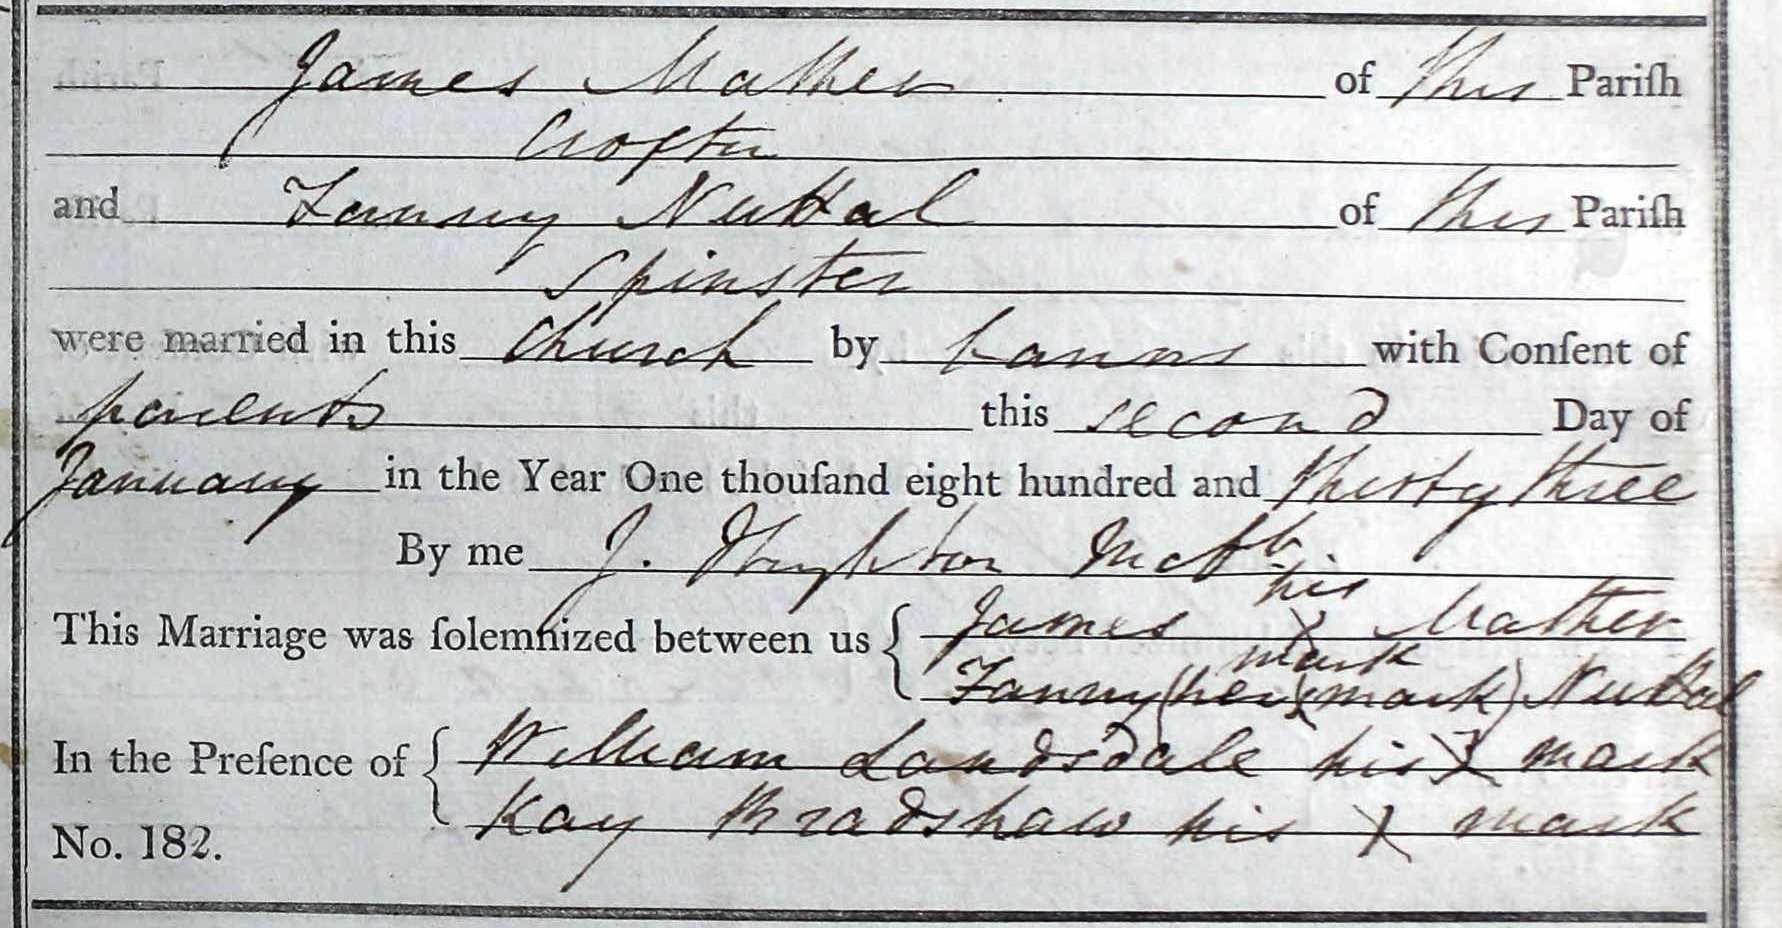 James Mather of this Pariſh
Crofter
and Fanny Nuttal of this Pariſh
Spinster
were married in this Church by banns with Conſent of
parents this second Day of
January in the Year One thouſand eight hundred and thirty three
By me J.
This Marriage was ſolemnized between us { James his X mark Mather
Fanny (her X mark) Nuttal
In the Preſence of { William Landsdale his X mark
Kay Bradshaw his X mark
No. 182.